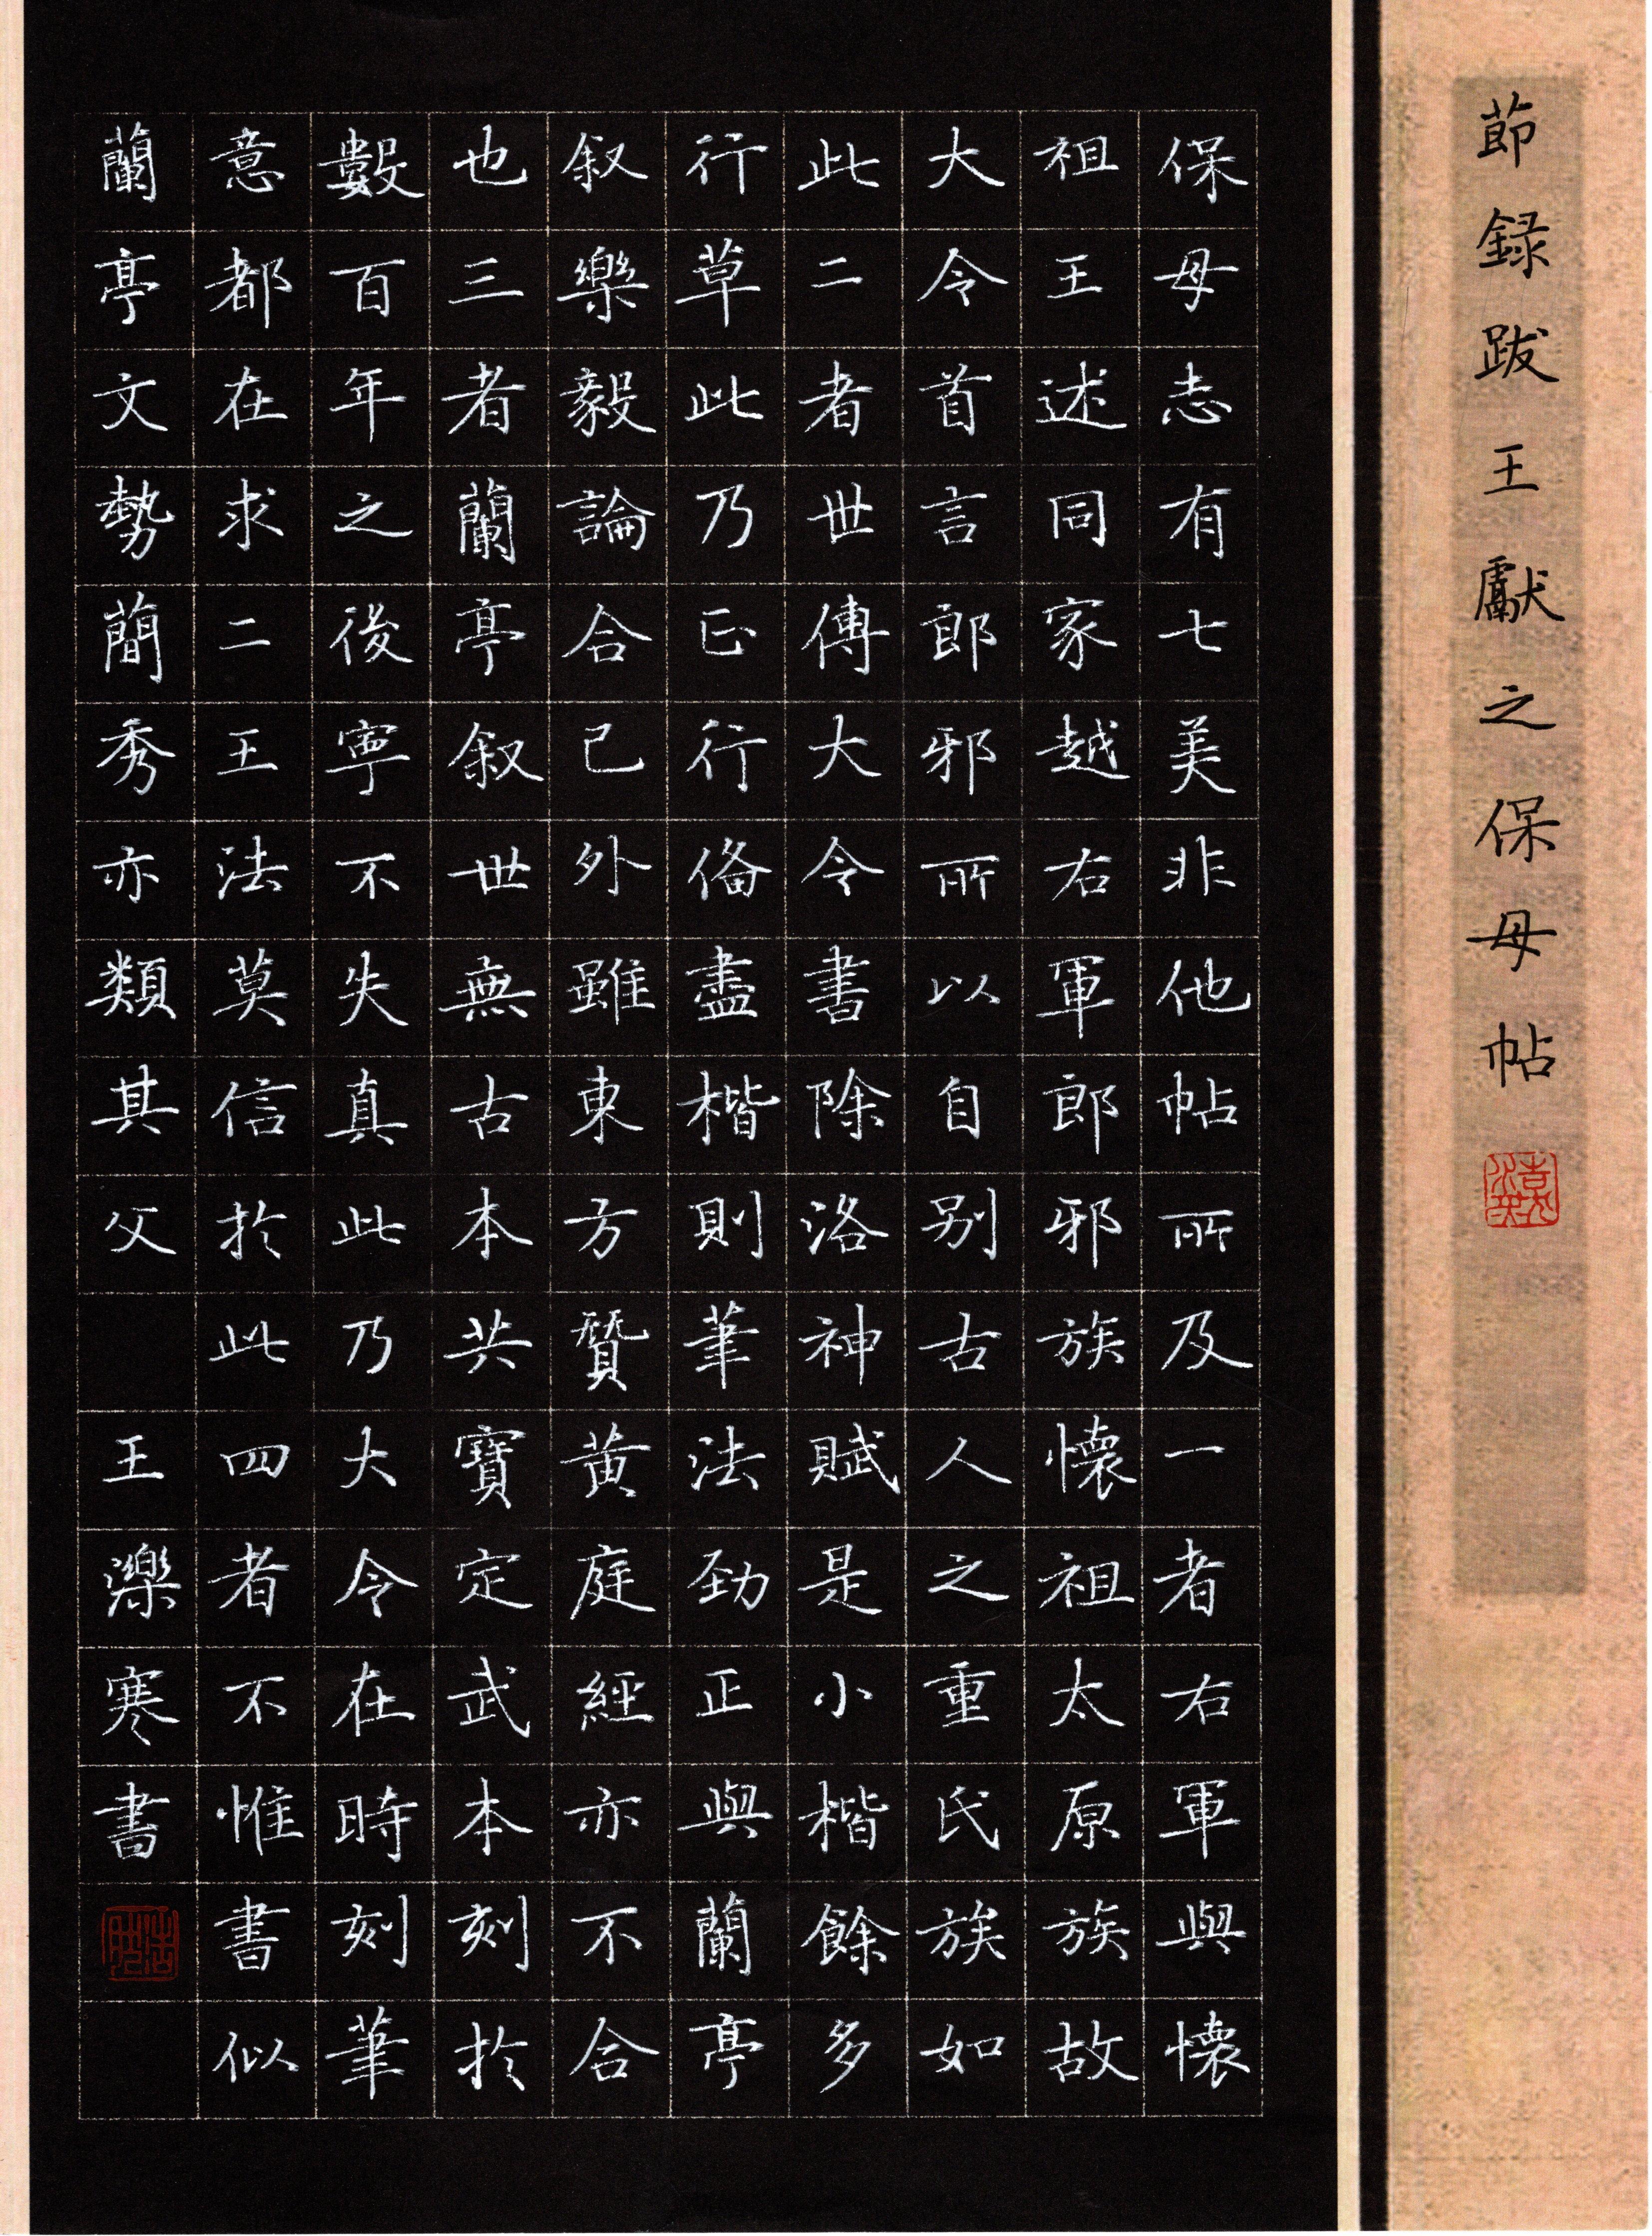 節錄跋王獻之保母帖
保母志有七美非他帖所及一者右軍與懷
祖王述同家越右軍郎邪族懷祖太原族故
大令首言郎邪所以自别古人之重氏族如
此二者世傳大令書除洛神賦是小楷餘多
行草此乃正行俻盡楷則筆法劲正與蘭亭
叙樂毅論合已外雖東方贊黄庭經亦不合
也三者蘭亭叙世無古本共寶定武本刻於
數百年之後寧不失真此乃大令在時刻筆
意都在求二王法莫信於此四者不惟書似
蘭亭文勢簡秀亦類其父
王濼寒書